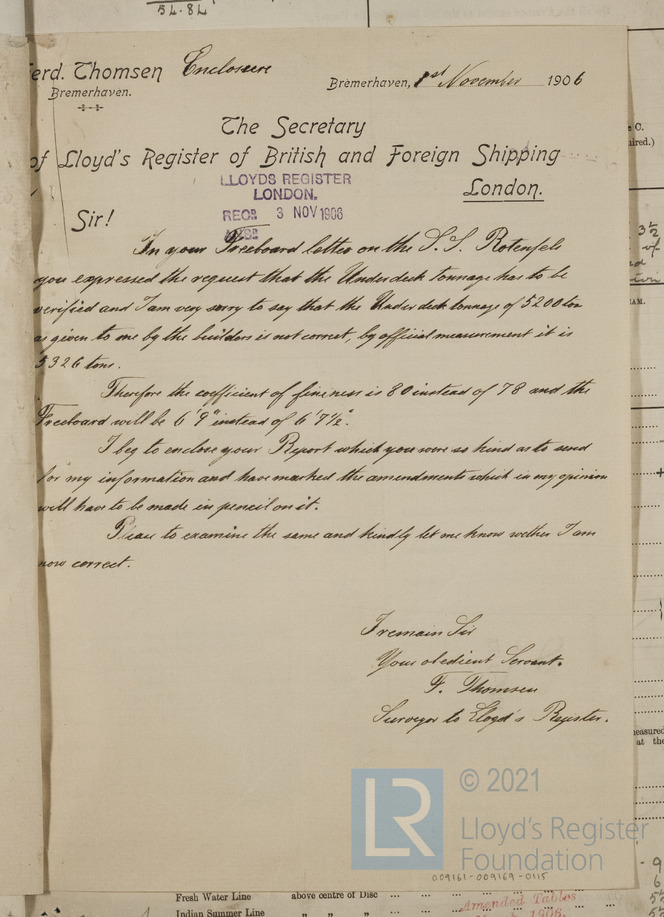 54.82
erd. Thomsen Enclosure
Bremerhaven.
Bremerhaven, 1st November 1906
The Secretary
of Lloyd's Register of British and Foreign Shipping
London.
LLOYDS REGISTER
LONDON.
RECD 3 NOV 1906
Sir!
In your Freeboard letter on the S.S. Rotenfels
you expressed the request that the Underdeck tonnage has to be
verified and I am very sorry to say that the Underdeck tonnage of 5200 ton
as given to me by the builders is not correct, by official measurement it is
5326 tons.
Therefore the coefficient of fineness is 80 instead of 78 and the
Freeboard will be 6'9" instead of 6'7½".
I beg to enclose your Report which you were so kind as to send
for my information and have marked the amendments which in my opinion
will have to be made in pencil on it.
Please to examine the same and kindly let me know wether I am
now correct.
I remain Sir
Your obedient Servant.
F. Thomsen
Surveyor to Lloyd's Register.
LR
© 2021
Lloyd's Register
Foundation
009161-009169-0115
Fresh Water Line above centre of Disc
Indian Summer Line " " "
Amended Tables
1906.